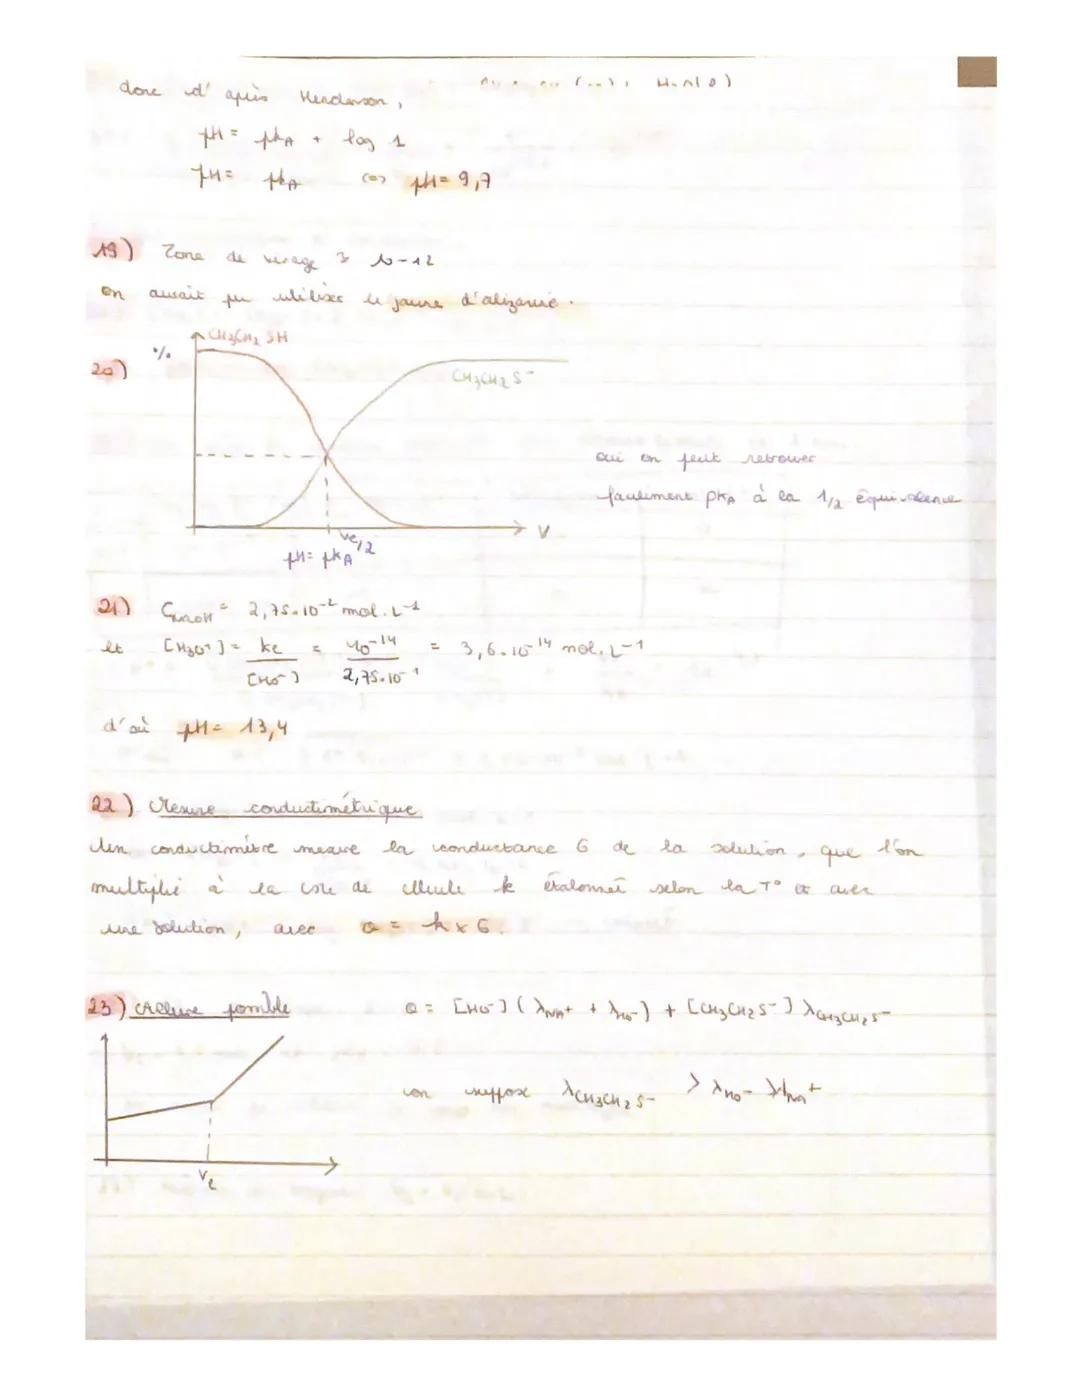 donc d'après Henderson,
pH = pkA + log 1
pH = pkA <=> pH = 9,7
19) Zone de virage : 10-12
on aurait pu utiliser le jaune d'alizarine.
20)
%
CH3CH2 SH
CH3CH2 S-
oui on peut retrouver
facilement pKA à la 1/2 équivalence
V
Ve/2
pH = pkA
21) CNaOH = 2,75.10-2 mol.L-1
et [H3O+] = ke / [HO-] = 10-14 / 2,75.10-1 = 3,6.10-14 mol.L-1
d'où pH = 13,4
22) Mesure conductimétrique
Un conductimètre mesure la conductance G de la solution, que l'on
multiplie à la cste de cellule k étalonné selon la T° et avec
une solution, avec σ = k x G.
23) Allure possible
σ = [HO-] (λNa+ + λHO-) + [CH3CH2S-] λCH3CH2S-
on suppose λCH3CH2S- > λHO- > λNa+
Ve